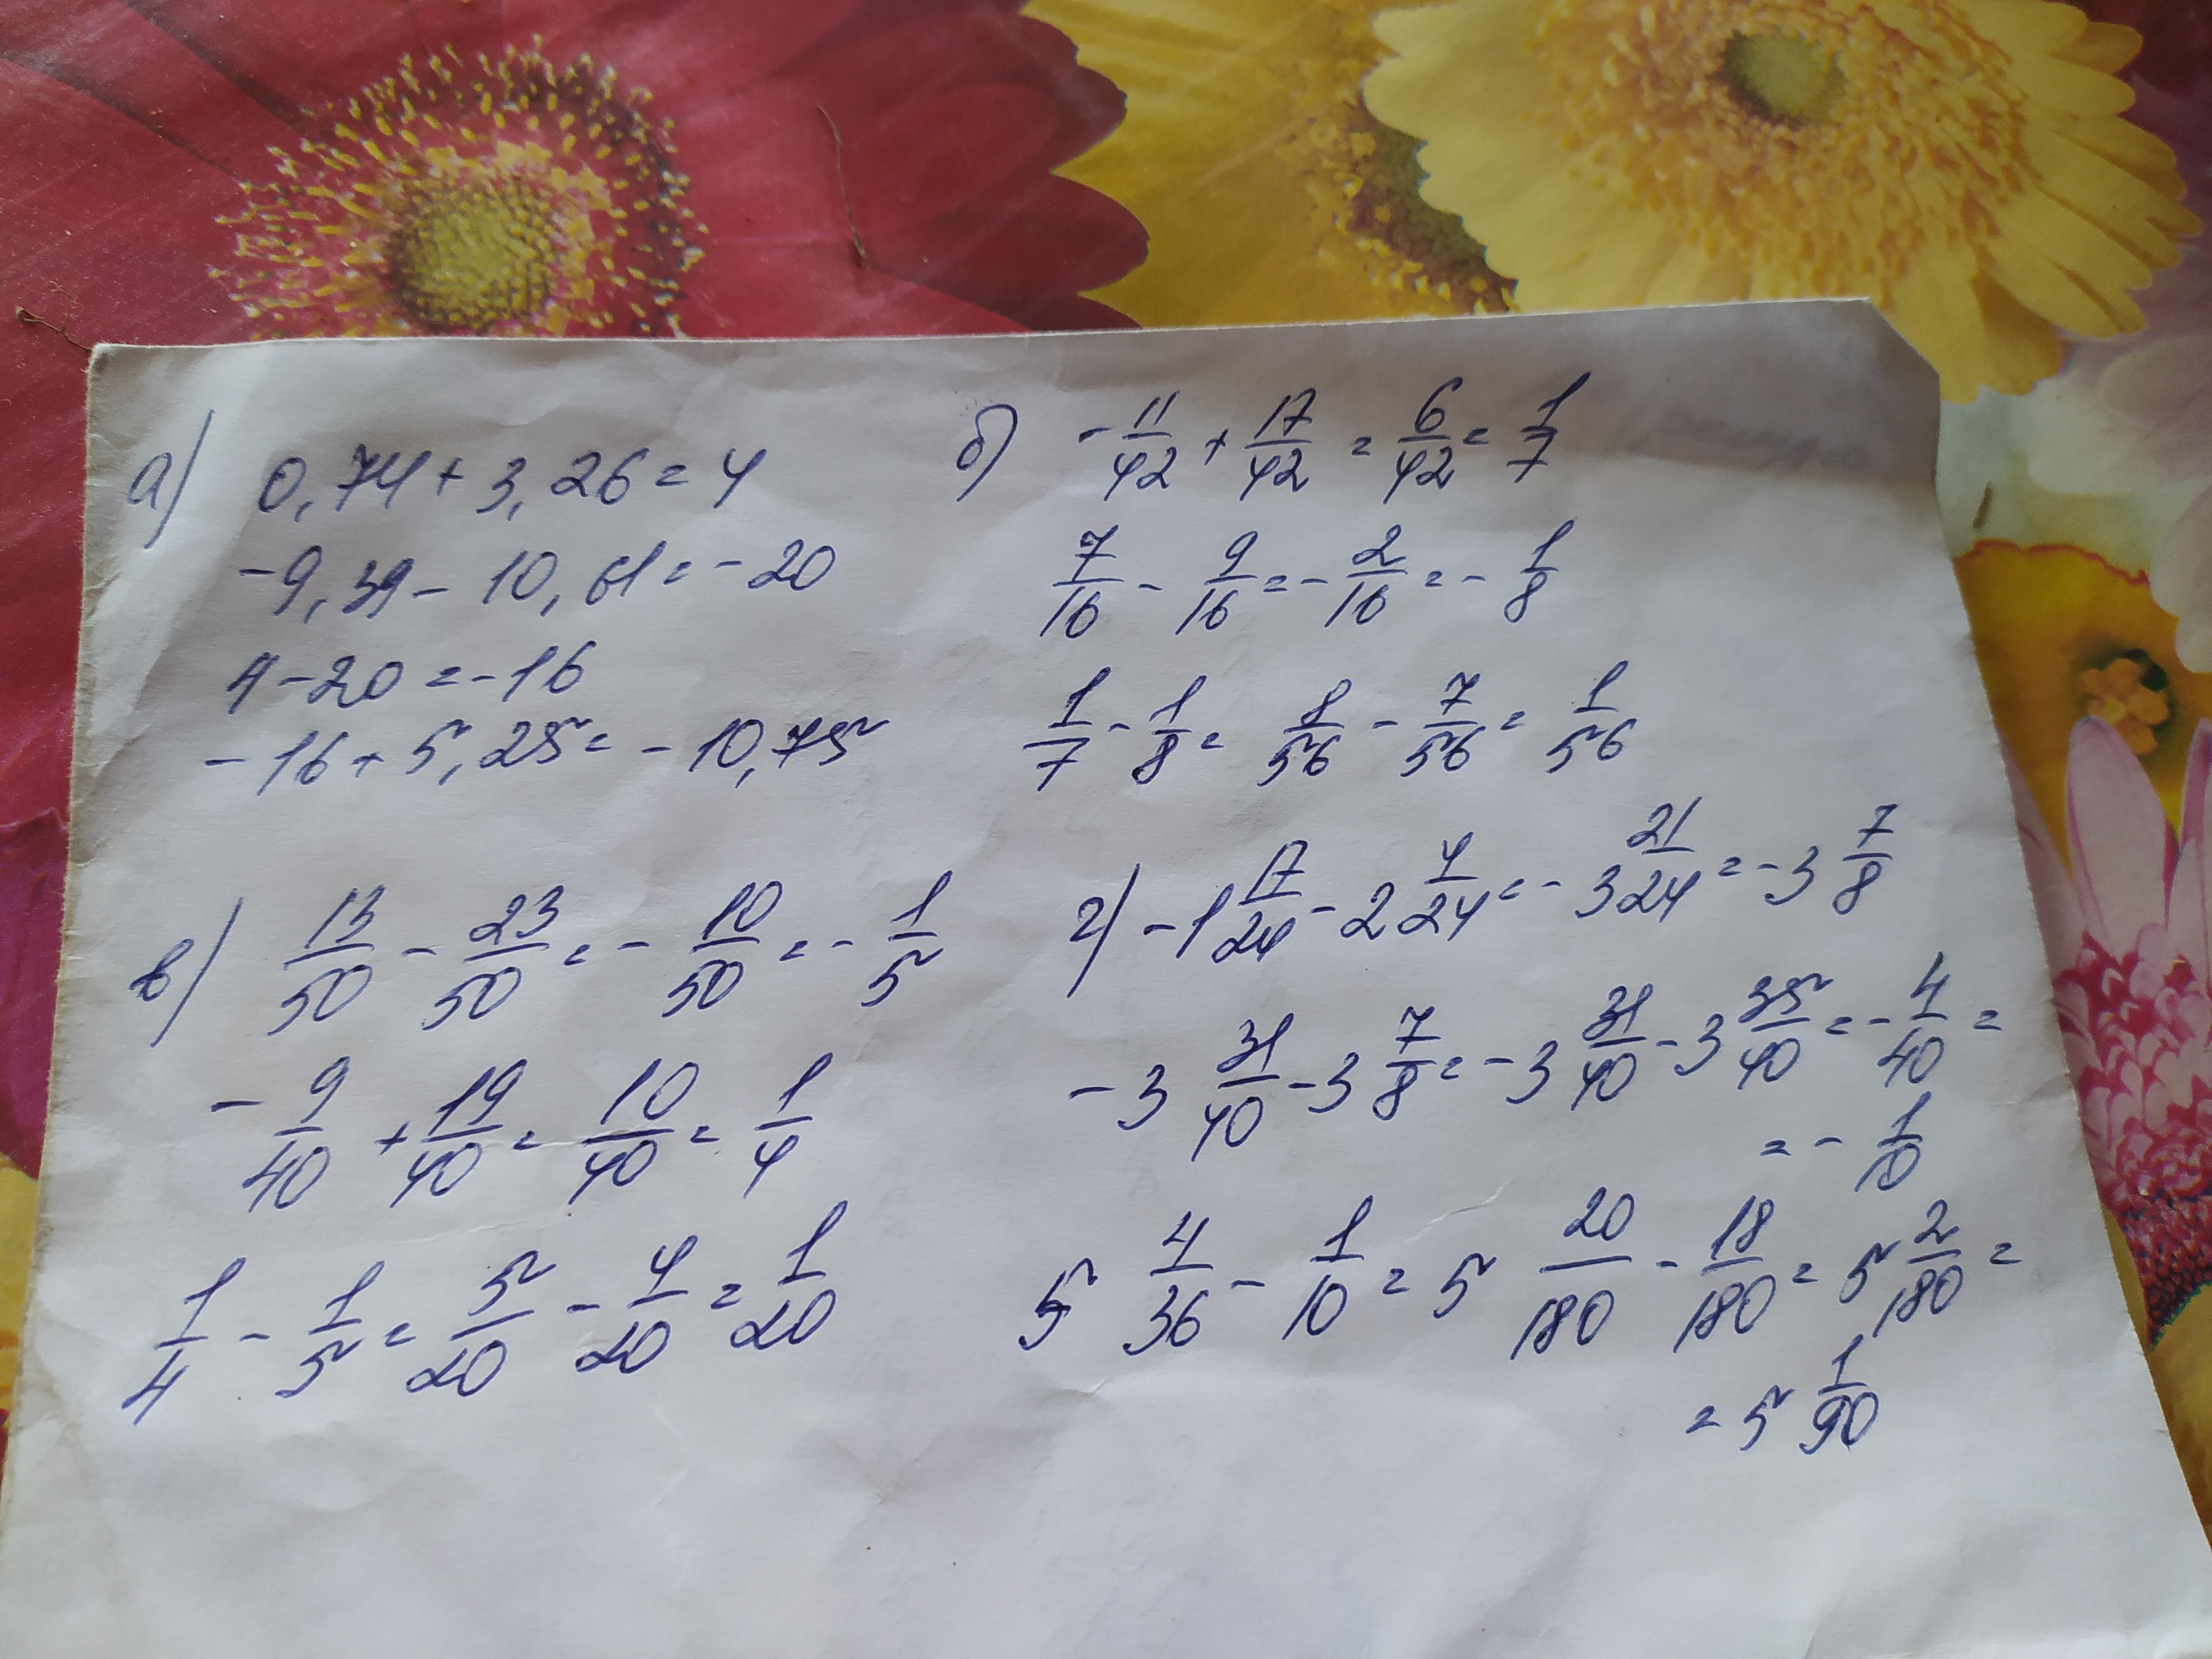 а) 0,74 + 3,26 = 4
-9,39 - 10,61 = -20
4 - 20 = -16
-16 + 5,25 = -10,75
б) -11/42 + 17/42 = 6/42 = 1/7
7/16 - 9/16 = -2/16 = -1/8
1/7 - 1/8 = 8/56 - 7/56 = 1/56
в) 13/50 - 23/50 = -10/50 = -1/5
-9/40 + 19/40 = 10/40 = 1/4
1/4 - 1/5 = 5/20 - 4/20 = 1/20
г) -1 17/24 - 2 4/24 = -3 21/24 = -3 7/8
-3 31/40 - 3 7/8 = -3 31/40 - 3 35/40 = -4/40 =
= -1/10
5 4/36 - 1/10 = 5 20/180 - 18/180 = 5 2/180 =
= 5 1/90